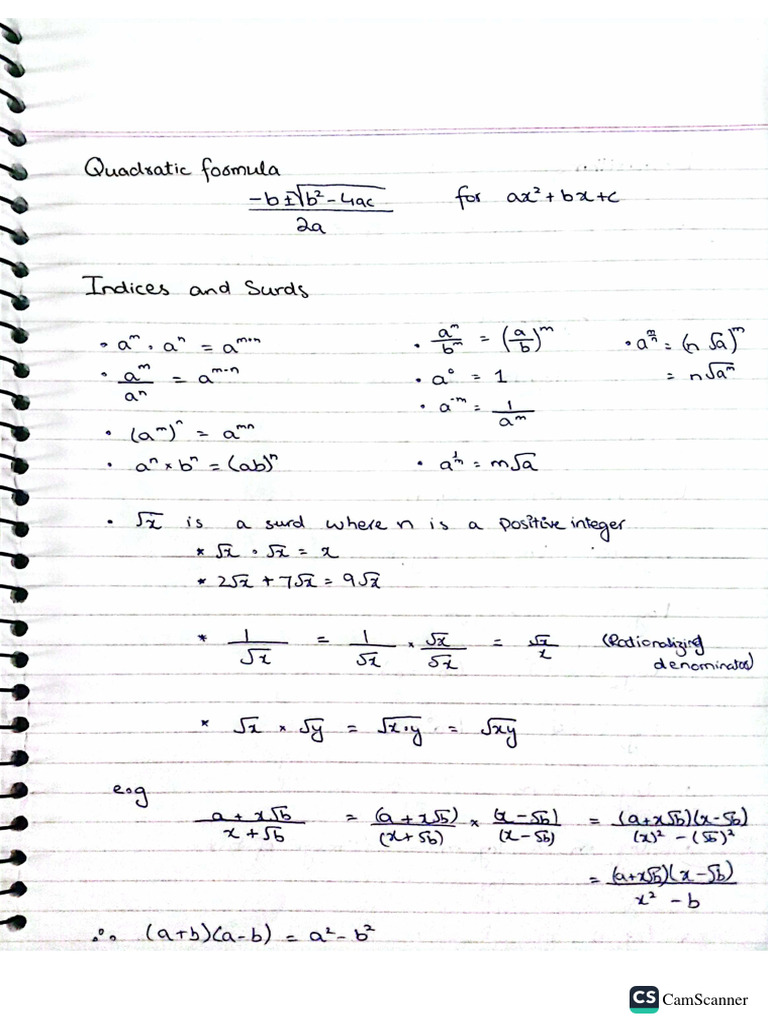 Quadratic formula
-b±√b²-4ac / 2a for ax² + bx + c
Indices and Surds
• aᵐ · aⁿ = aᵐ⁺ⁿ • aᵐ/bᵐ = (a/b)ᵐ • a^(m/n) = (n√a)ᵐ
• aᵐ/aⁿ = aᵐ⁻ⁿ • a⁰ = 1 = n√aᵐ
• a⁻ᵐ = 1/aᵐ
• (aᵐ)ⁿ = aᵐⁿ
• aⁿ × bⁿ = (ab)ⁿ • a^(1/m) = m√a
• √x is a surd where n is a positive integer
* √x · √x = x
* 2√x + 7√x = 9√x
* 1/√x = 1/√x × √x/√x = √x/x (Rationalizing
denominator)
* √x × √y = √x·y = √xy
e.g
a + x√b / x + √b = (a + x√b)/(x + √b) × (x - √b)/(x - √b) = (a+x√b)(x-√b) / (x)² - (√b)²
= (a+x√b)(x-√b) / x² - b
∴ (a+b)(a-b) = a² - b²
CS CamScanner